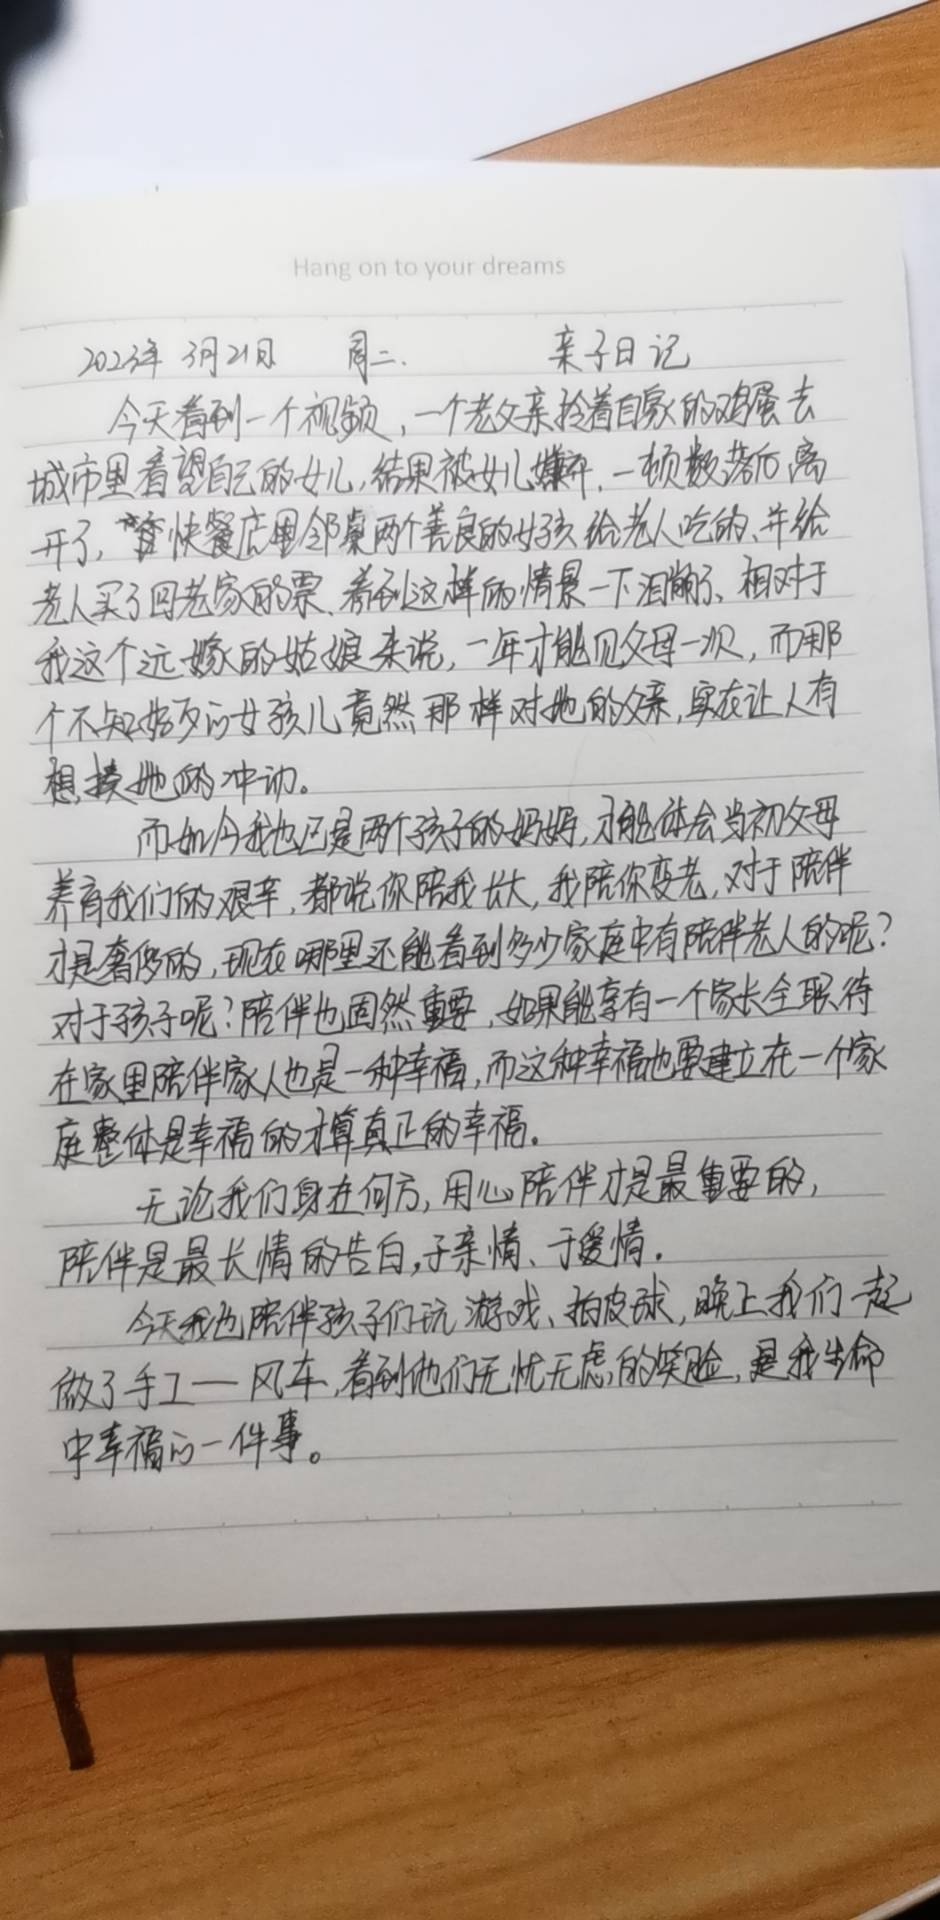 Hang on to your dreams
2023年 3月21日 周二. 亲子日记
今天看到一个视频，一个老父亲拎着自家的鸡蛋去
城市里看望自己的女儿，结果被女儿嫌弃、一顿数落后离
开了，在快餐店里邻桌两个善良的女孩给老人吃的、并给
老人买了回老家的票、看到这样的情景一下泪崩了、相对于
我这个远嫁的姑娘来说，一年才能见父母一次，而那
个不知好歹的女孩儿竟然那样对她的父亲，实在让人有
想揍她的冲动。
而如今我也已是两个孩子的妈妈，才能体会当初父母
养育我们的艰辛、都说你陪我长大，我陪你变老，对于陪伴
才是奢侈的，现在哪里还能看到多少家庭中有陪伴老人的呢？
对于孩子呢？陪伴也固然重要，如果能享有一个家长全职待
在家里陪伴家人也是一种幸福，而这种幸福也要建立在一个家
庭整体是幸福的才算真正的幸福。
无论我们身在何方，用心陪伴才是最重要的，
陪伴是最长情的告白，于亲情、于爱情。
今天我也陪伴孩子们玩游戏、拍皮球，晚上我们一起
做了手工——风车，看到他们无忧无虑的笑脸，是我生命
中幸福的一件事。